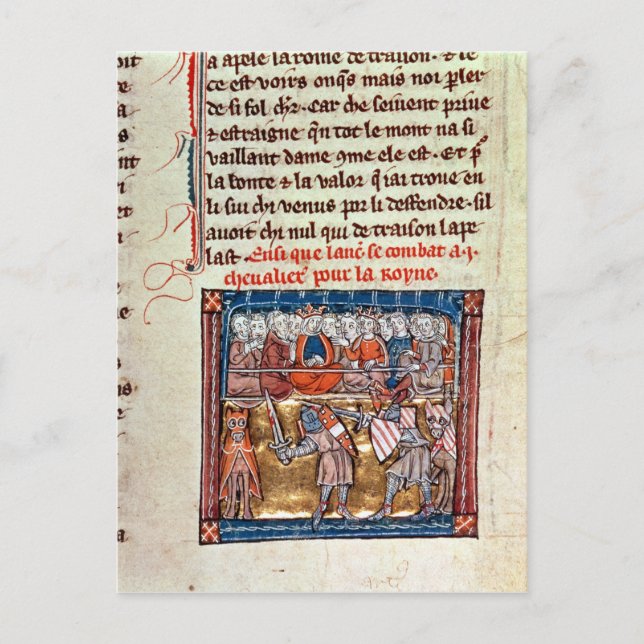 oit
a apele la roine de traison. & je
ce est voirs onqs mais noi pler
e
de si fol chr. Car che seivent prive
a
& estraigne qn tot le mont na si
s
vaillant dame 9me ele est. Et p
la bonte & la valor q iai trove en
et
li sui chi venus por li deffendre. sil
avoit chi nul qui de traison lape
last. Ensi que lanc. se combat a .j.
chevalier pour la Royne.